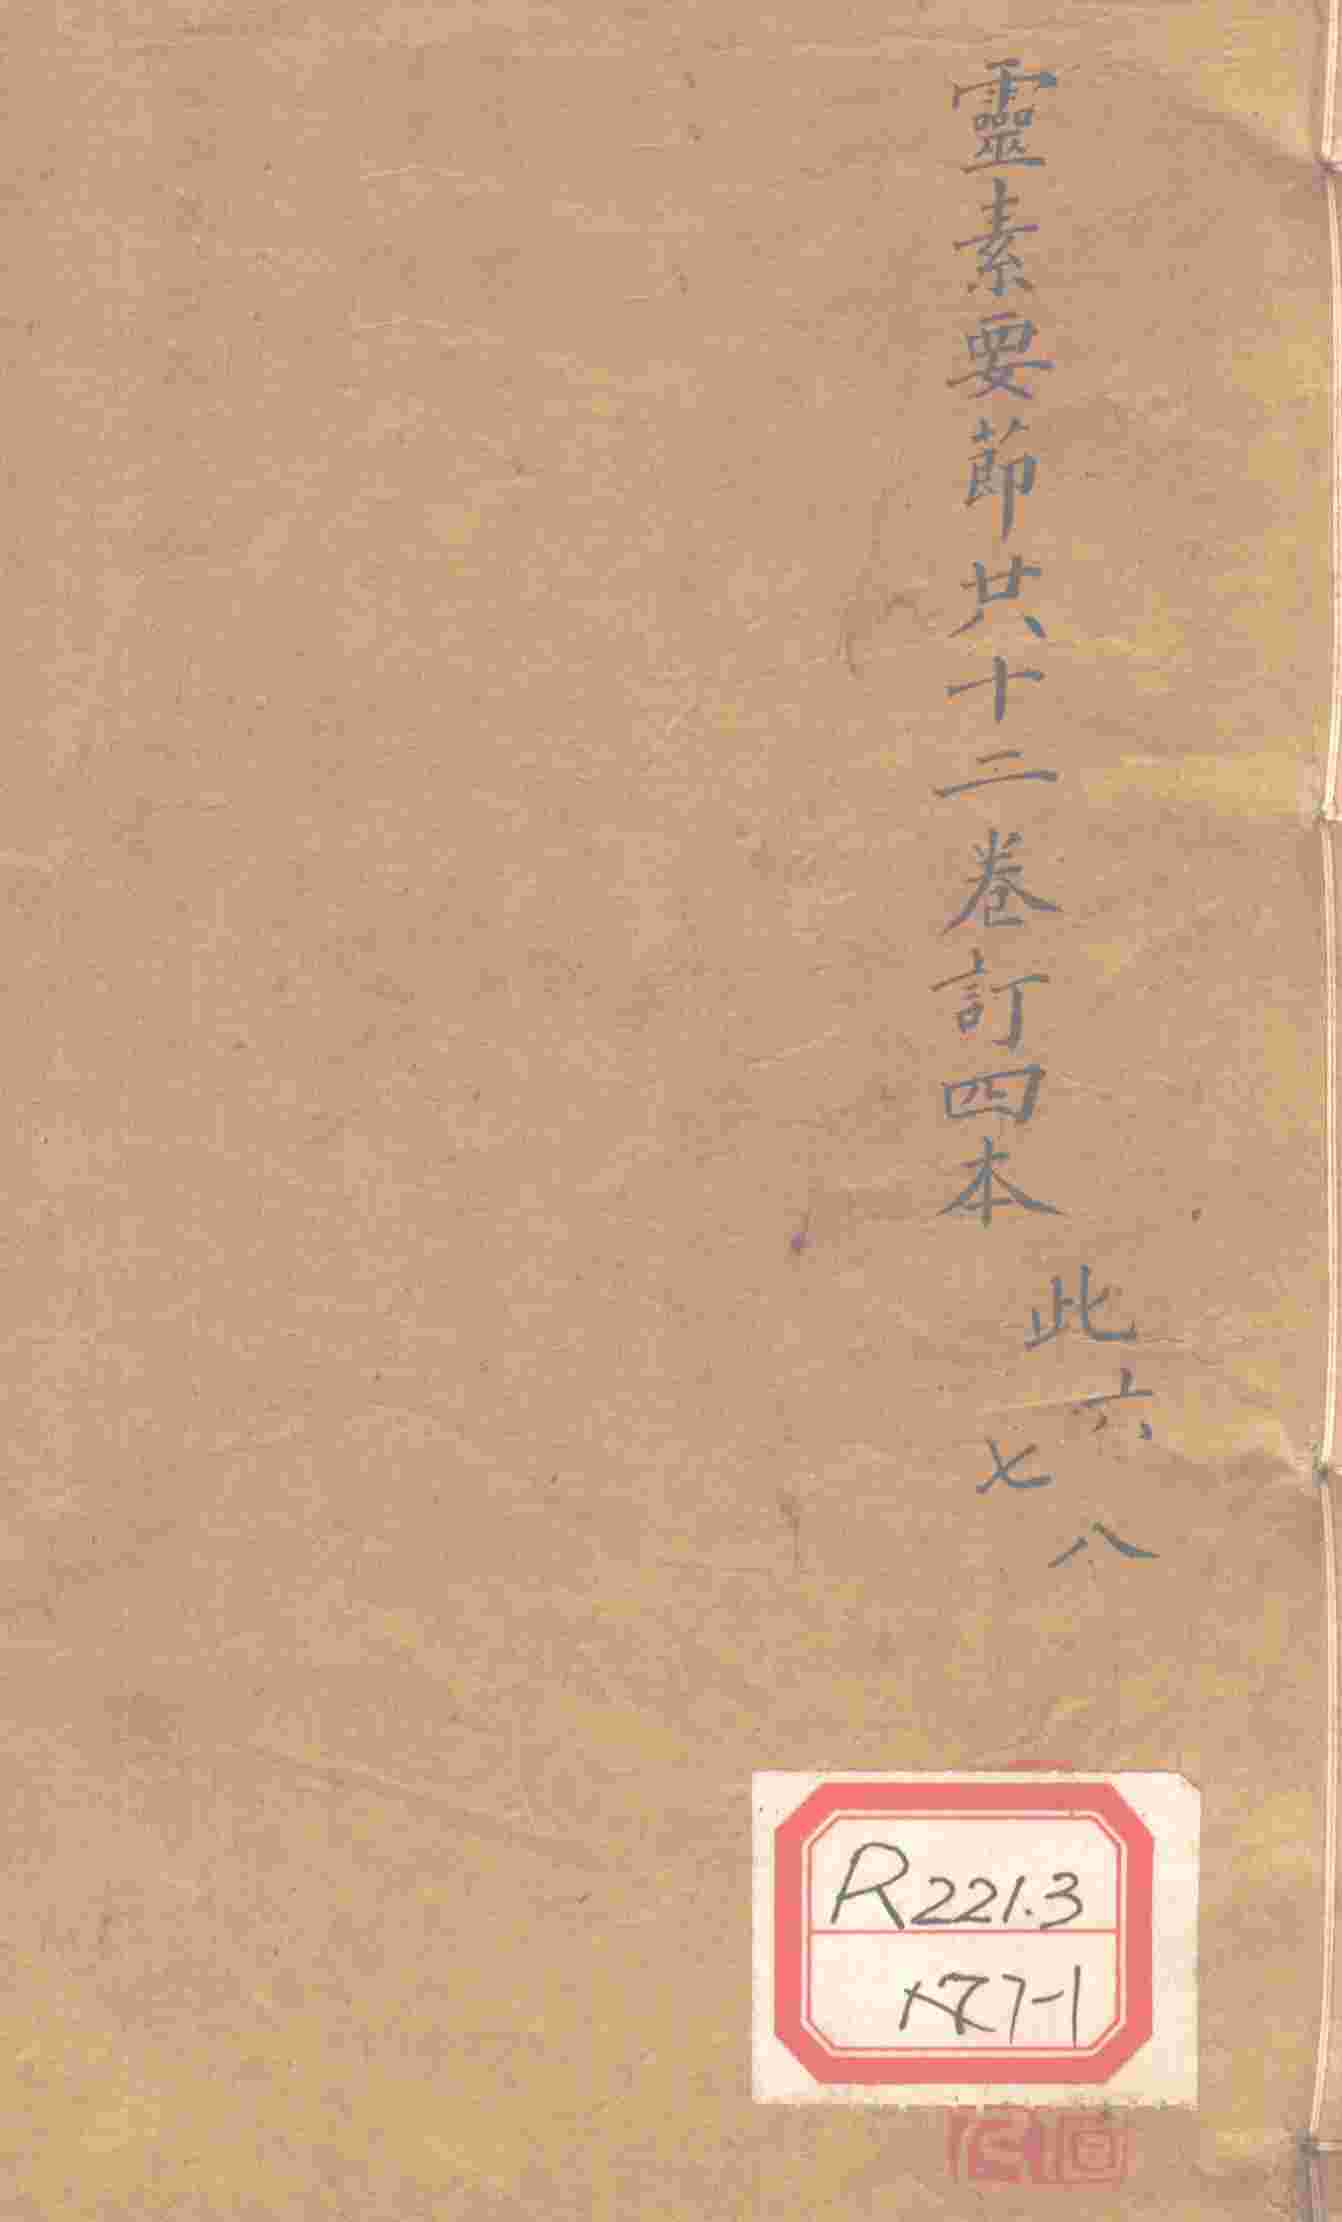 靈素要節共十二卷訂四本
此六七八
R221.3